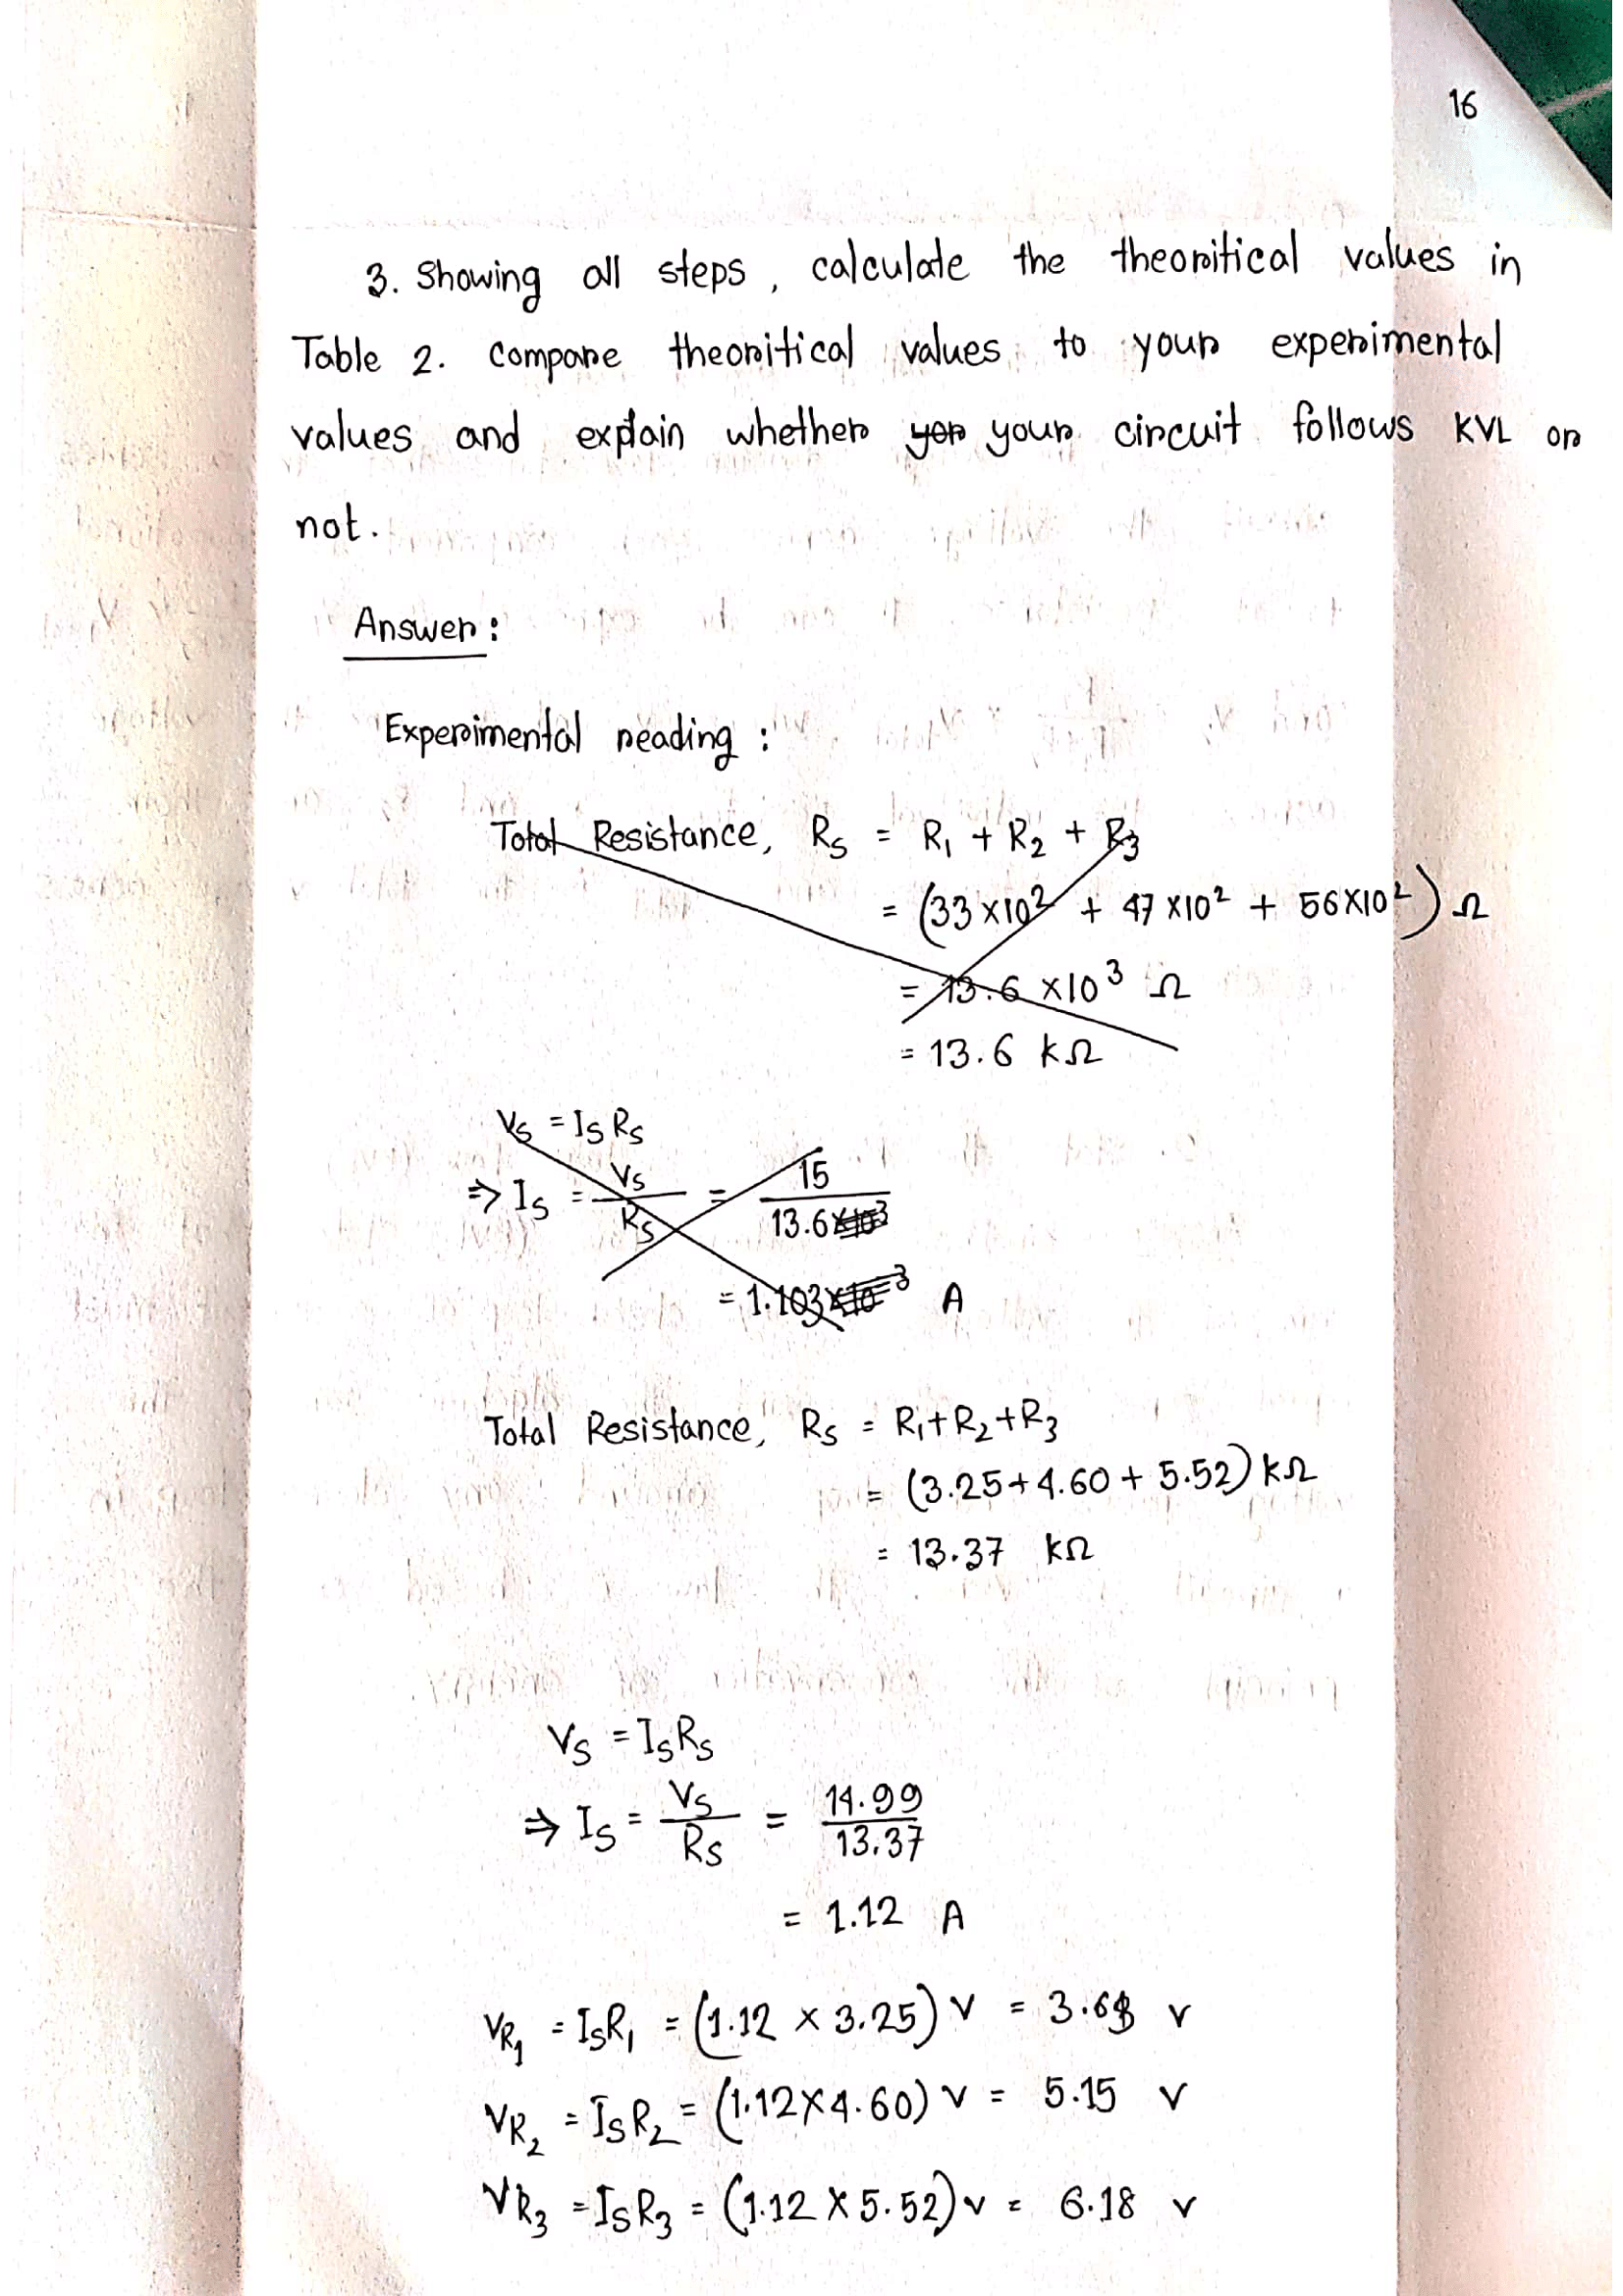 16
3. Showing all steps, calculate the theoritical values in
Table 2. Compare theoritical values to your experimental
values and explain whether yor your circuit follows KVL or
not.
Answer:
Experimental reading:
Total Resistance, Rs = R₁ + R₂ + R₃
= (33×10² + 47×10² + 56×10²) Ω
= 13.6 ×10³ Ω
= 13.6 kΩ
Vs = Is Rs
⇒ Is = Vs/Rs = 15/13.6×10³
= 1.103×10⁻³ A
Total Resistance, Rs = R₁+R₂+R₃
= (3.25+4.60+5.52) kΩ
= 13.37 kΩ
Vs = IsRs
⇒ Is = Vs/Rs = 14.99/13.37
= 1.12 A
VR₁ = IsR₁ = (1.12 × 3.25) v = 3.6 v
VR₂ = IsR₂ = (1.12×4.60) v = 5.15 v
VR₃ = IsR₃ = (1.12 × 5.52) v = 6.18 v